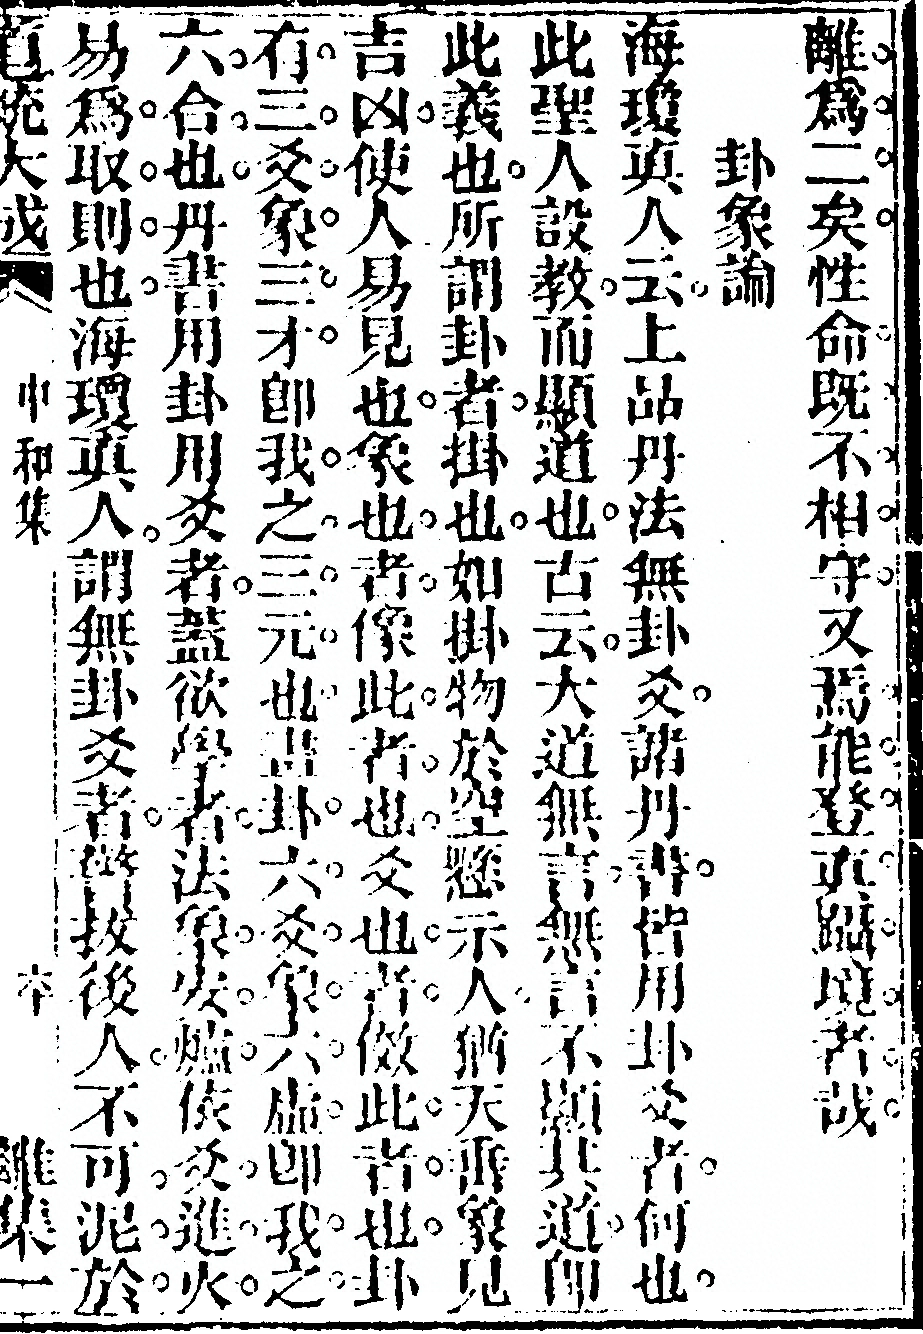 離爲二矣性命既不相守又焉能登真躡境者哉
卦象論
海瓊真人云上品丹法無卦爻諸丹書皆用卦爻者何也
此聖人設教而顯道也古云大道無言無言不顯其道即
此義也所謂卦者掛也如掛物於空懸示人猶天垂象見
吉凶使人易見也象也者像此者也爻也者傚此者也卦
有三爻象三才即我之三元也畫卦六爻象六虛即我之
六合也丹書用卦用爻者蓋欲學者法象安爐依爻進火
易爲取則也海瓊真人謂無卦爻者警拔後人不可泥於
道統大成 中和集 卒 離集一